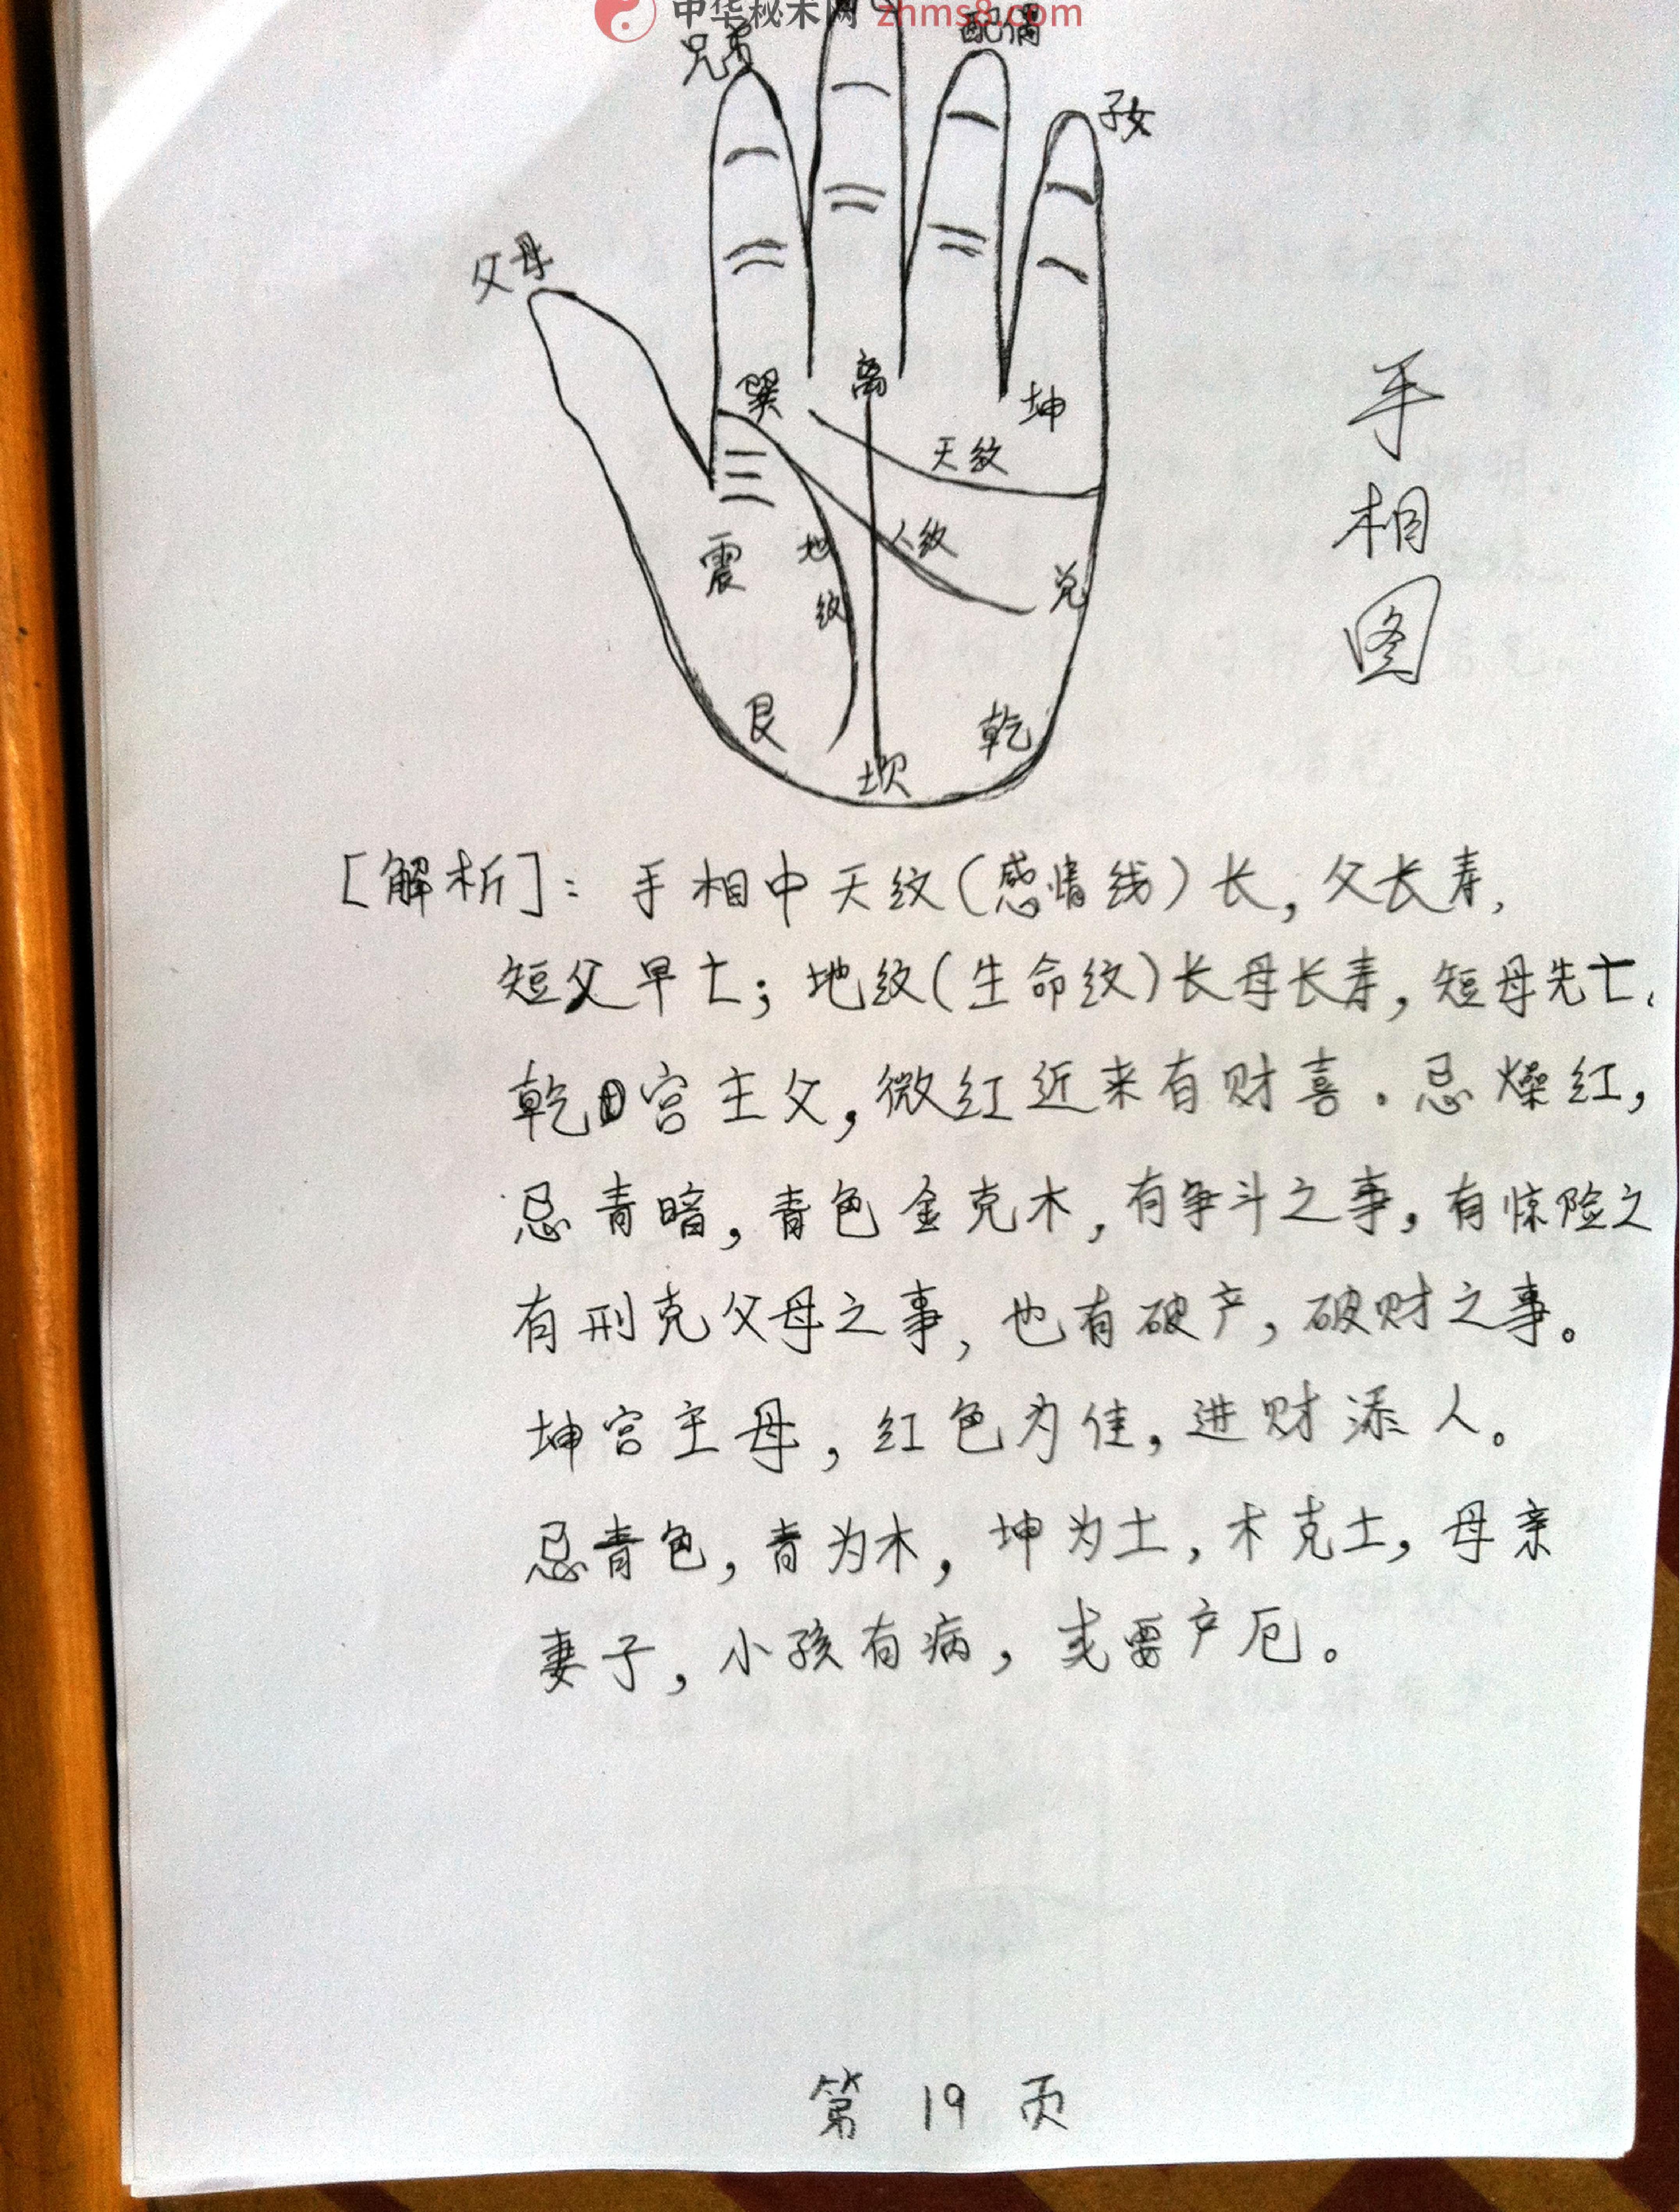 中华秘术网 zhms8.com
兄弟
配偶
子女
父母
巽
离
坤
天纹
人纹
地纹
震
兑
艮
乾
坎
手相图
[解析]：手相中天纹(感情线)长,父长寿,
短父早亡；地纹(生命纹)长母长寿,短母先亡,
乾宫主父,微红近来有财喜.忌燥红,
忌青暗,青色金克木,有争斗之事,有惊险之
有刑克父母之事,也有破产,破财之事。
坤宫主母,红色为佳,进财添人。
忌青色,青为木,坤为土,木克土,母亲
妻子,小孩有病,或要产厄。
第 19 页